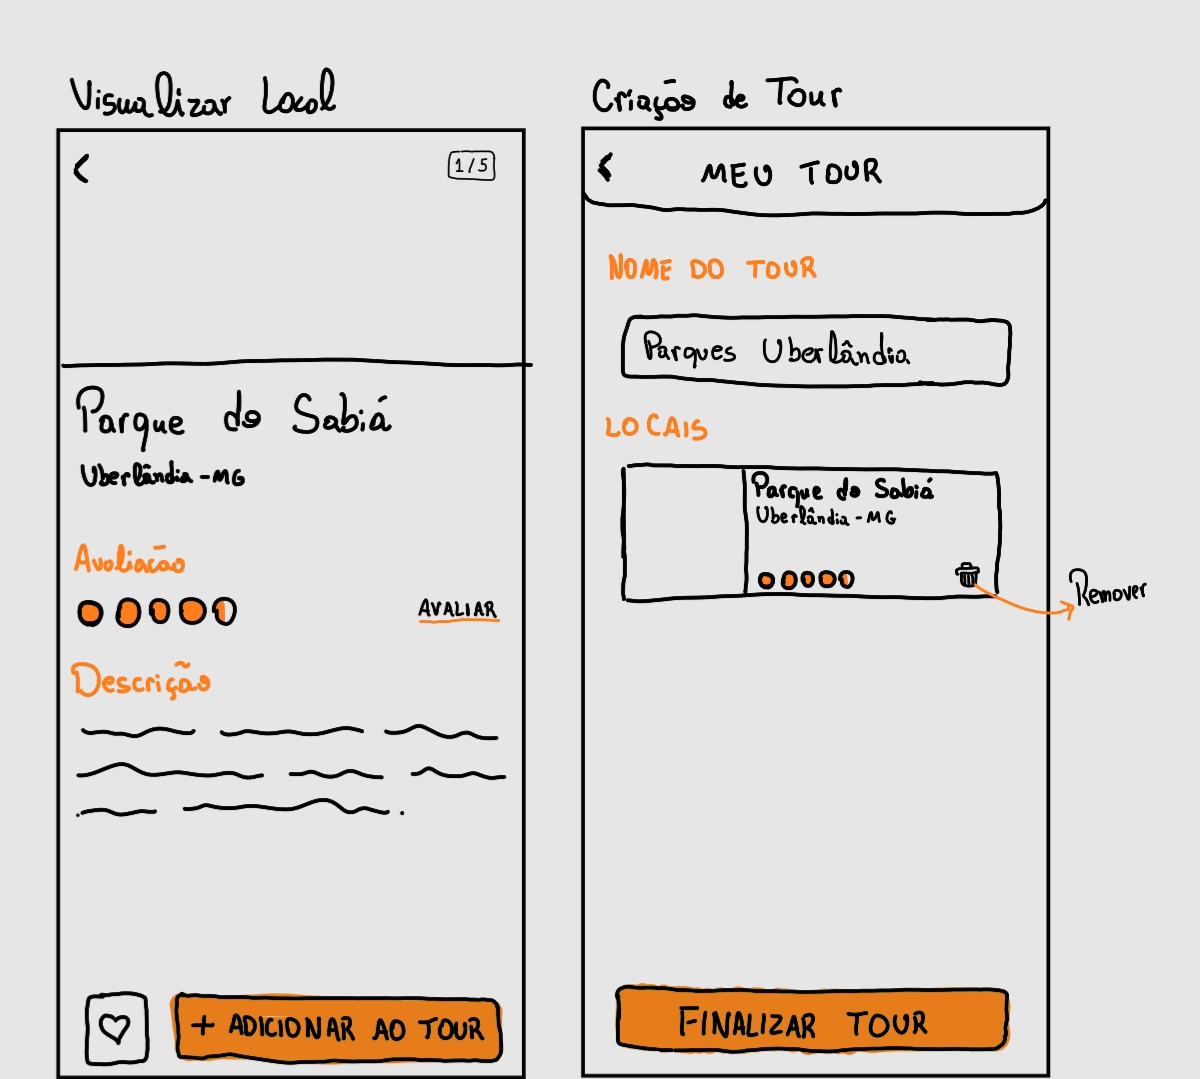 Visualizar Local
1/5
Parque do Sabiá
Uberlândia - MG
Avaliacão
AVALIAR
Descrição
+ ADICIONAR AO TOUR
Criação de Tour
MEU TOUR
NOME DO TOUR
Parques Uberlândia
LOCAIS
Parque do Sabiá
Uberlândia - MG
Remover
FINALIZAR TOUR